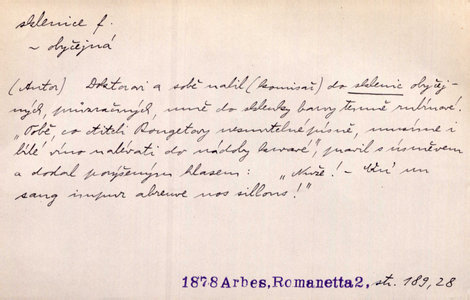 sklenice f.
~ obyčejná
(Autor) Doktorovi a sobě nalil (komisař) do sklenic obyčej-
ných, průzračných, mně do sklenky barvy temně rubínové.
„Tobě, co ctiteli Rougetovy nesmrtelné písně, musíme i
bílé víno nalévati do nádoby krvavé", pravil s úsměvem
a dodal povýšeným hlasem: „Nuže! – Qu' un
sang impur abreuve nos sillons!"
1878 Arbes, Romanetta 2, str. 189, 28